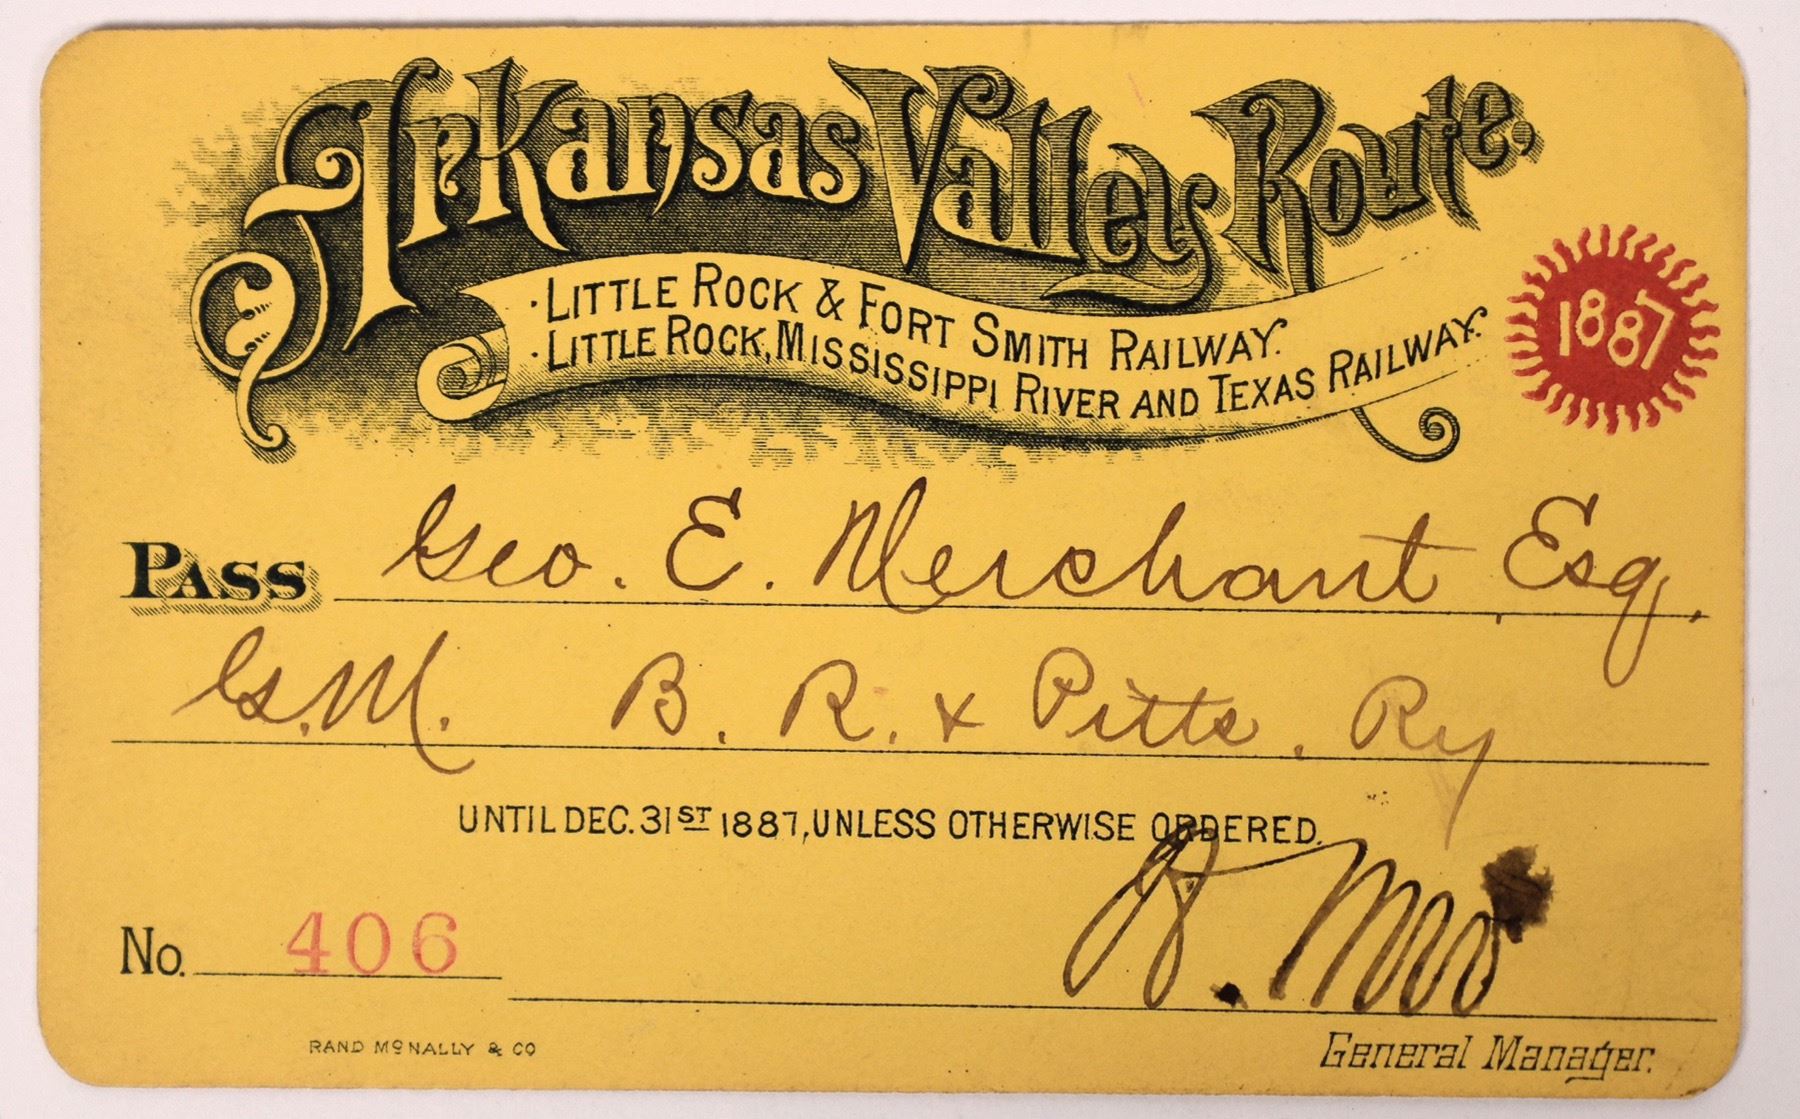 Arkansas Valley Route.
·LITTLE ROCK & FORT SMITH RAILWAY.
·LITTLE ROCK, MISSISSIPPI RIVER AND TEXAS RAILWAY.
1887
PASS Geo. E. Merchant, Esq.
G.M. B. R. & Pitts. Ry
UNTIL DEC. 31ST 1887, UNLESS OTHERWISE ORDERED.
No. 406
General Manager.
RAND McNALLY & CO